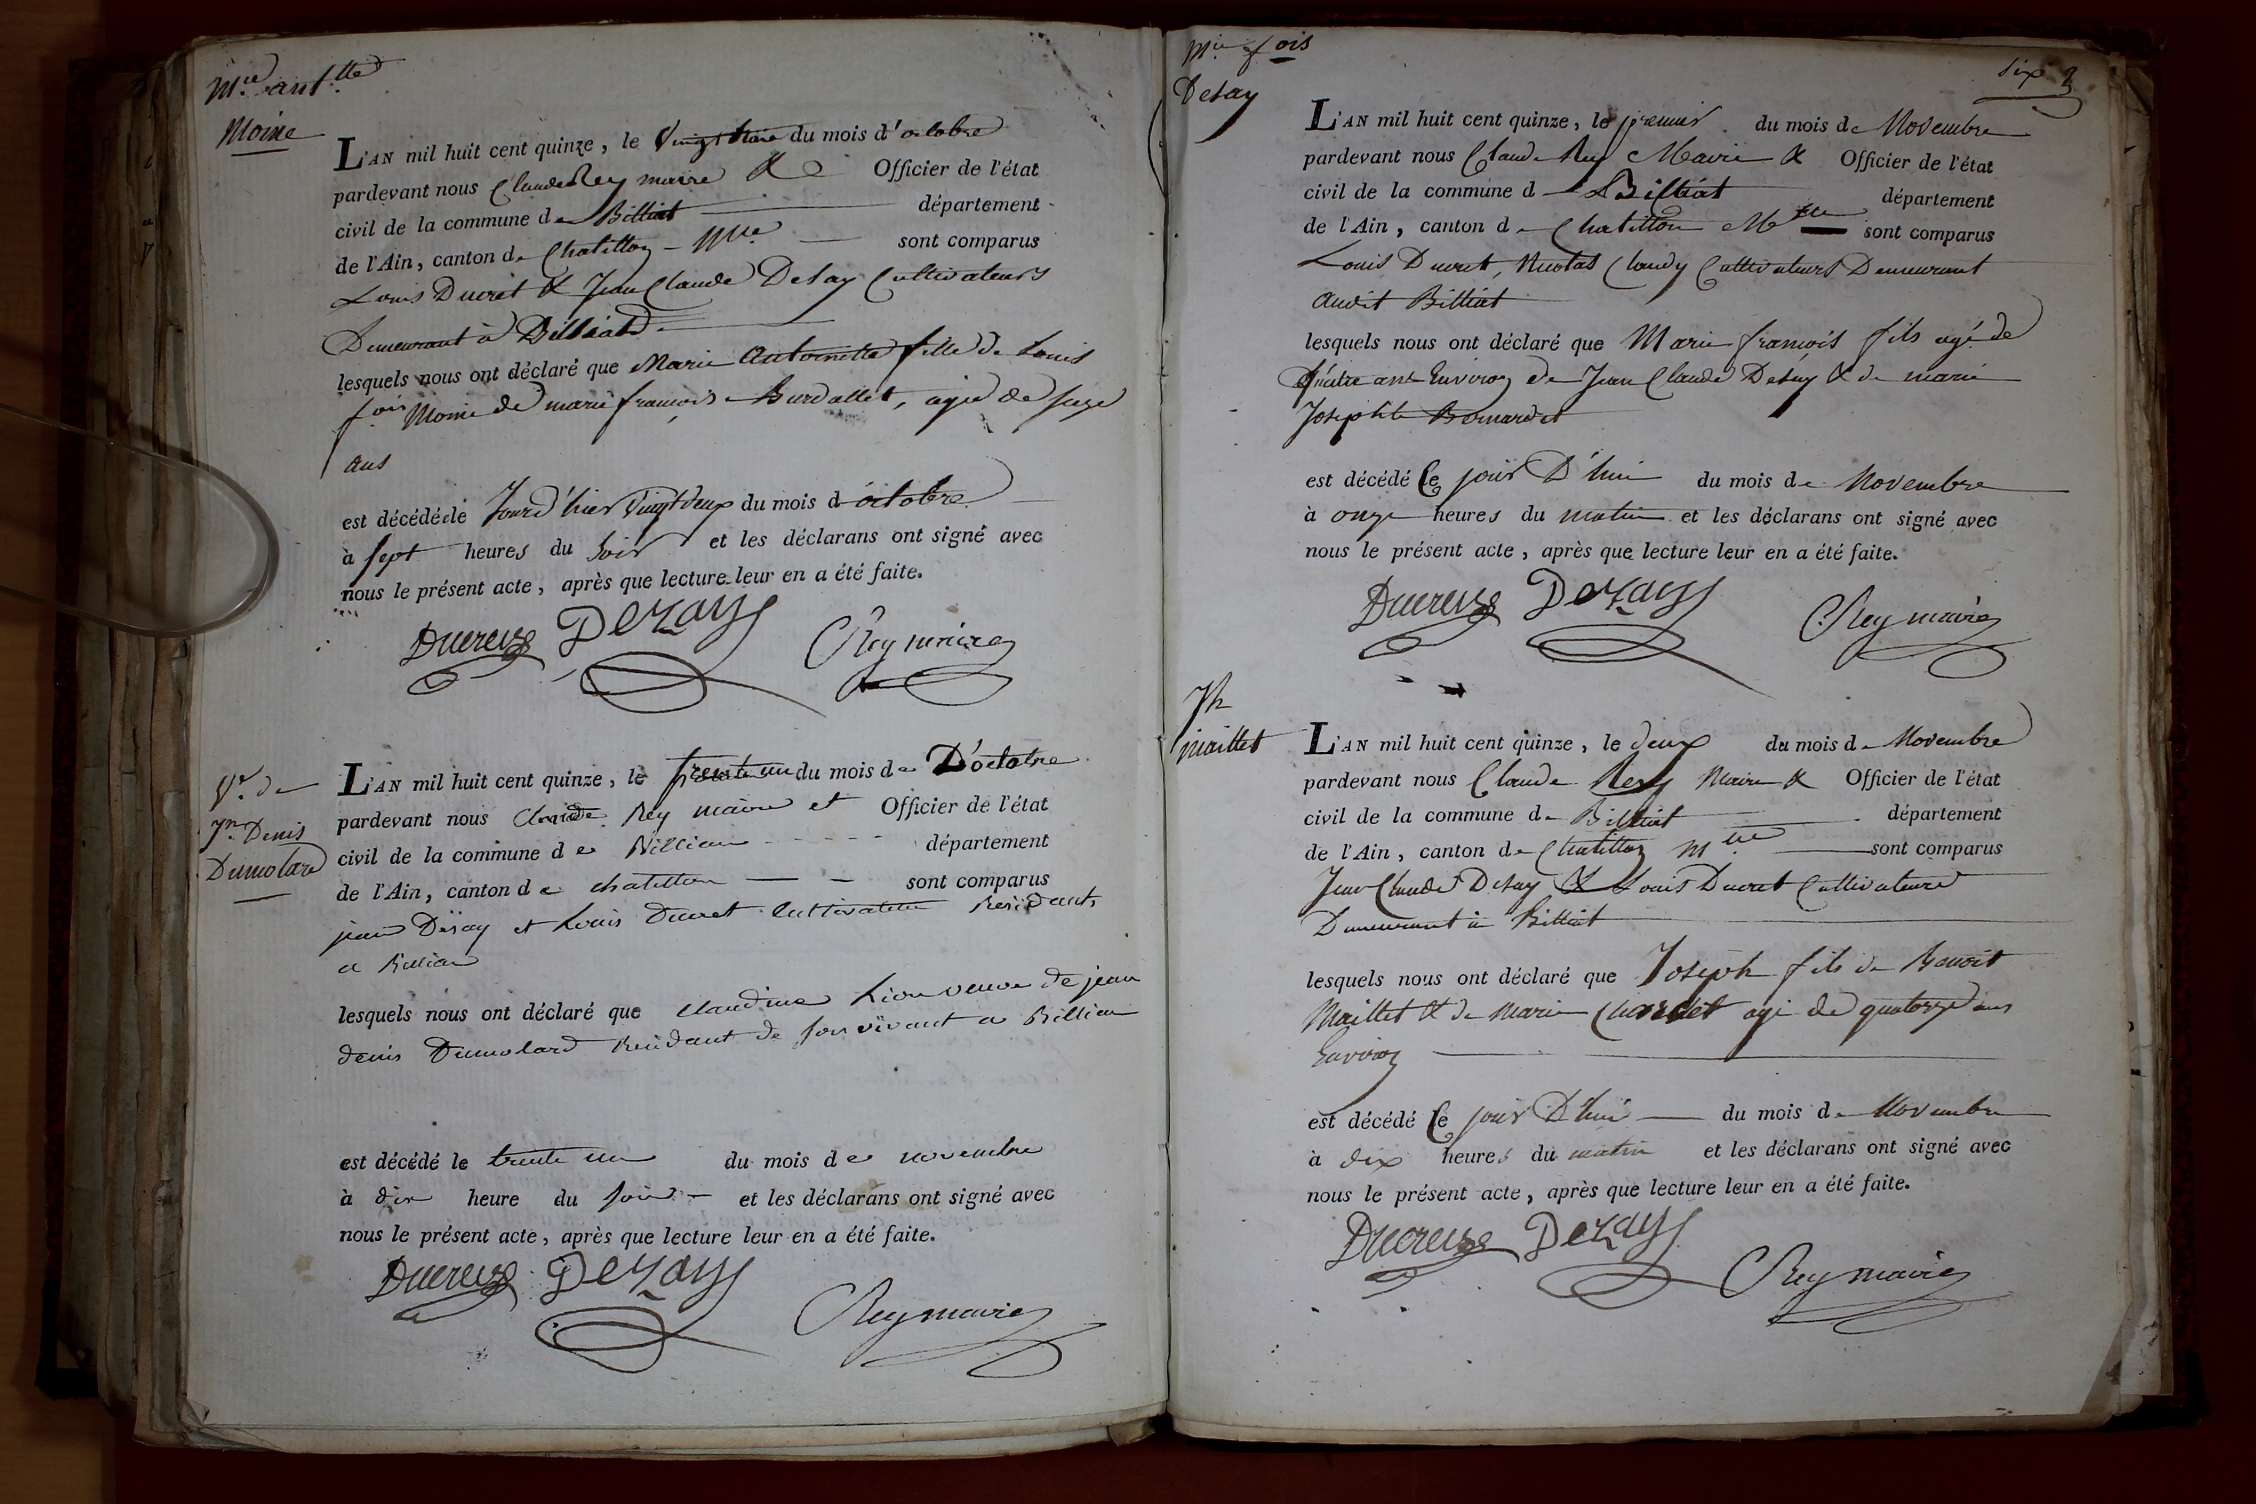 M.ie ant.tte
Moine
L'AN mil huit cent quinze, le Vingt trois du mois d'octobre
pardevant nous Claude Rey maire & Officier de l'état
civil de la commune de Billiat département
de l'Ain, canton de Chatillon M.lle sont comparus
Louis Ducret & Jean Claude Desay Cultivateurs
Demeurant à Billiat
lesquels nous ont déclaré que Marie Antoinette fille de Louis
f.ois Moine de marie françois Burdallet, agée de seze
ans
est décédé le Jour d'hier vingt deux du mois d octobre
à sept heures du soir et les déclarans ont signé avec
nous le présent acte, après que lecture leur en a été faite.
Ducrey Dezay CRey maire
V.e de
J.n Denis
Dumolard
L'AN mil huit cent quinze, le trente un du mois de D'octobre
pardevant nous claude Rey maire et Officier de l'état
civil de la commune de Billiat département
de l'Ain, canton de chatillon sont comparus
jean Desay et Louis Ducret Cultivateur Residant
a Billiat
lesquels nous ont déclaré que claudine veuve de jean
denis Dumolard Residant de son vivant a Billiat
est décédé le trente un du mois de novembre
à dix heure du soir et les déclarans ont signé avec
nous le présent acte, après que lecture leur en a été faite.
Ducrey Dezay CRey maire
six
M.ie f.ois
Desay
L'AN mil huit cent quinze, le premier du mois de Novembre
pardevant nous Claude Rey Maire & Officier de l'état
civil de la commune d Billiat département
de l'Ain, canton de Chatillon M.lle sont comparus
Louis Ducret, Nicolas Claudy Cultivateurs Demeurant
Audit Billiat
lesquels nous ont déclaré que Marie françois fils agé de
quatre ans Environ de Jean Claude Desay & de marie
Josephte Bornardet
est décédé Ce jour D'hui du mois de Novembre
à onze heures du matin et les déclarans ont signé avec
nous le présent acte, après que lecture leur en a été faite.
Ducrey Dezay CRey maire
Jh
Maillet
L'AN mil huit cent quinze, le deux du mois de Novembre
pardevant nous Claude Rey Maire & Officier de l'état
civil de la commune de Billiat département
de l'Ain, canton de Chatillon M.lle sont comparus
Jean Claude Desay & Louis Ducret Cultivateurs
Demeurant à Billiat
lesquels nous ont déclaré que Joseph fils de Benoit
Maillet & de Marie agé de quatorze ans
Environ
est décédé Ce jour D'hui du mois de Novembre
à dix heures du matin et les déclarans ont signé avec
nous le présent acte, après que lecture leur en a été faite.
Ducrey Dezay CRey maire